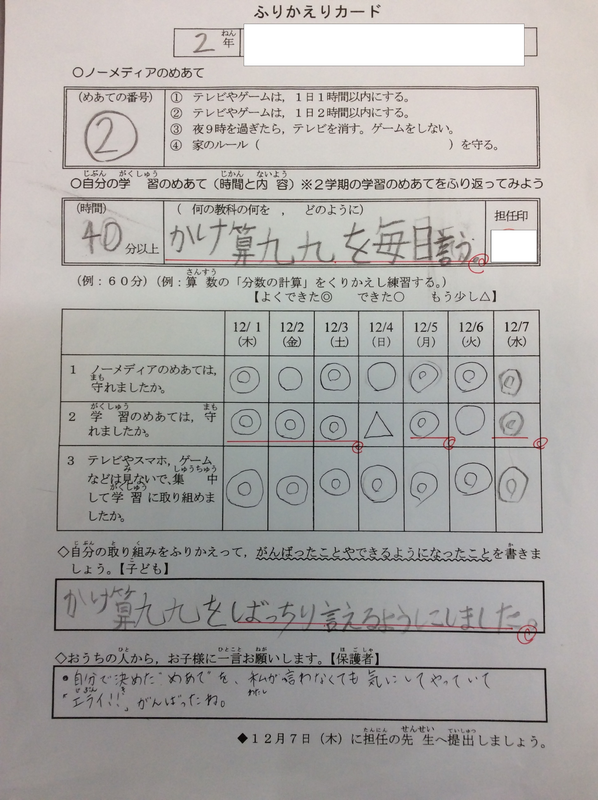 ふりかえりカード
2年
○ノーメディアのめあて
(めあての番号)
②
① テレビやゲームは，1日1時間以内にする。
② テレビやゲームは，1日2時間以内にする。
③ 夜9時を過ぎたら，テレビを消す。ゲームをしない。
④ 家のルール（　　　）を守る。
○自分の学習のめあて（時間と内容）※2学期の学習のめあてをふり返ってみよう
(時間)
40分以上
( 何の教科の何を ， どのように)
かけ算九九を毎日言う。
担任印
(例：60分)(例：算数の「分数の計算」をくりかえし練習する。)
【よくできた◎　できた○　もう少し△】
12/1 12/2 12/3 12/4 12/5 12/6 12/7
(木) (金) (土) (日) (月) (火) (水)
1 ノーメディアのめあては，守れましたか。 ◎ ○ ◎ ○ ◎ ◎ ◎
2 学習のめあては，守れましたか。 ◎ ◎ ◎ △ ◎ ○ ◎
3 テレビやスマホ，ゲームなどは見ないで，集中して学習に取り組めましたか。 ◎ ◎ ◎ ◎ ◎ ◎ ◎
◇自分の取り組みをふりかえって，がんばったことやできるようになったことを書きましょう。【子ども】
かけ算九九をばっちり言えるようにしました。
◇おうちの人から，お子様に一言お願いします。【保護者】
自分で決めた"めあて"を、私が言わなくても気にしてやっていて
「エライ!!」がんばったね。
◆12月7日（木）に担任の先生へ提出しましょう。